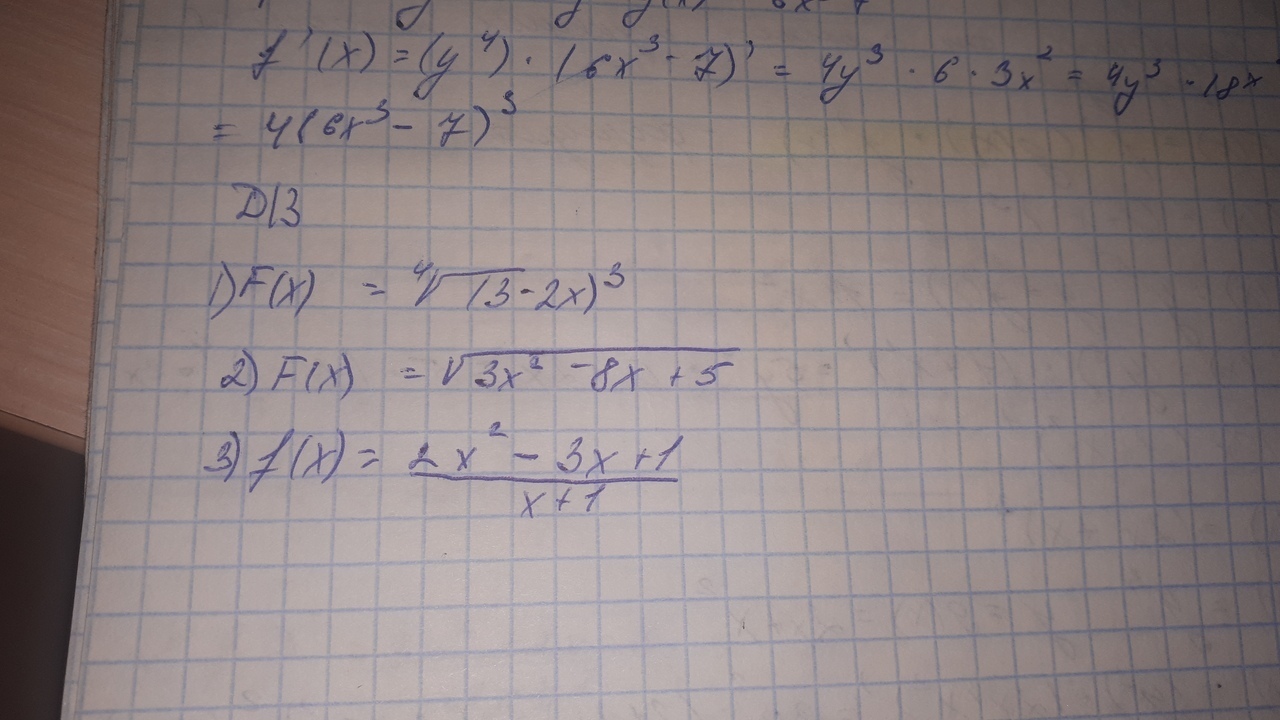 f'(x) = (y⁴) · (6x³ - 7)' = 4y³ · 6 · 3x² = 4y³ · 18x
= 4(6x³ - 7)³
D/З
1) F(x) = ⁴√(3-2x)³
2) F(x) = √3x² - 8x + 5
3) f(x) = 2x² - 3x + 1
x + 1